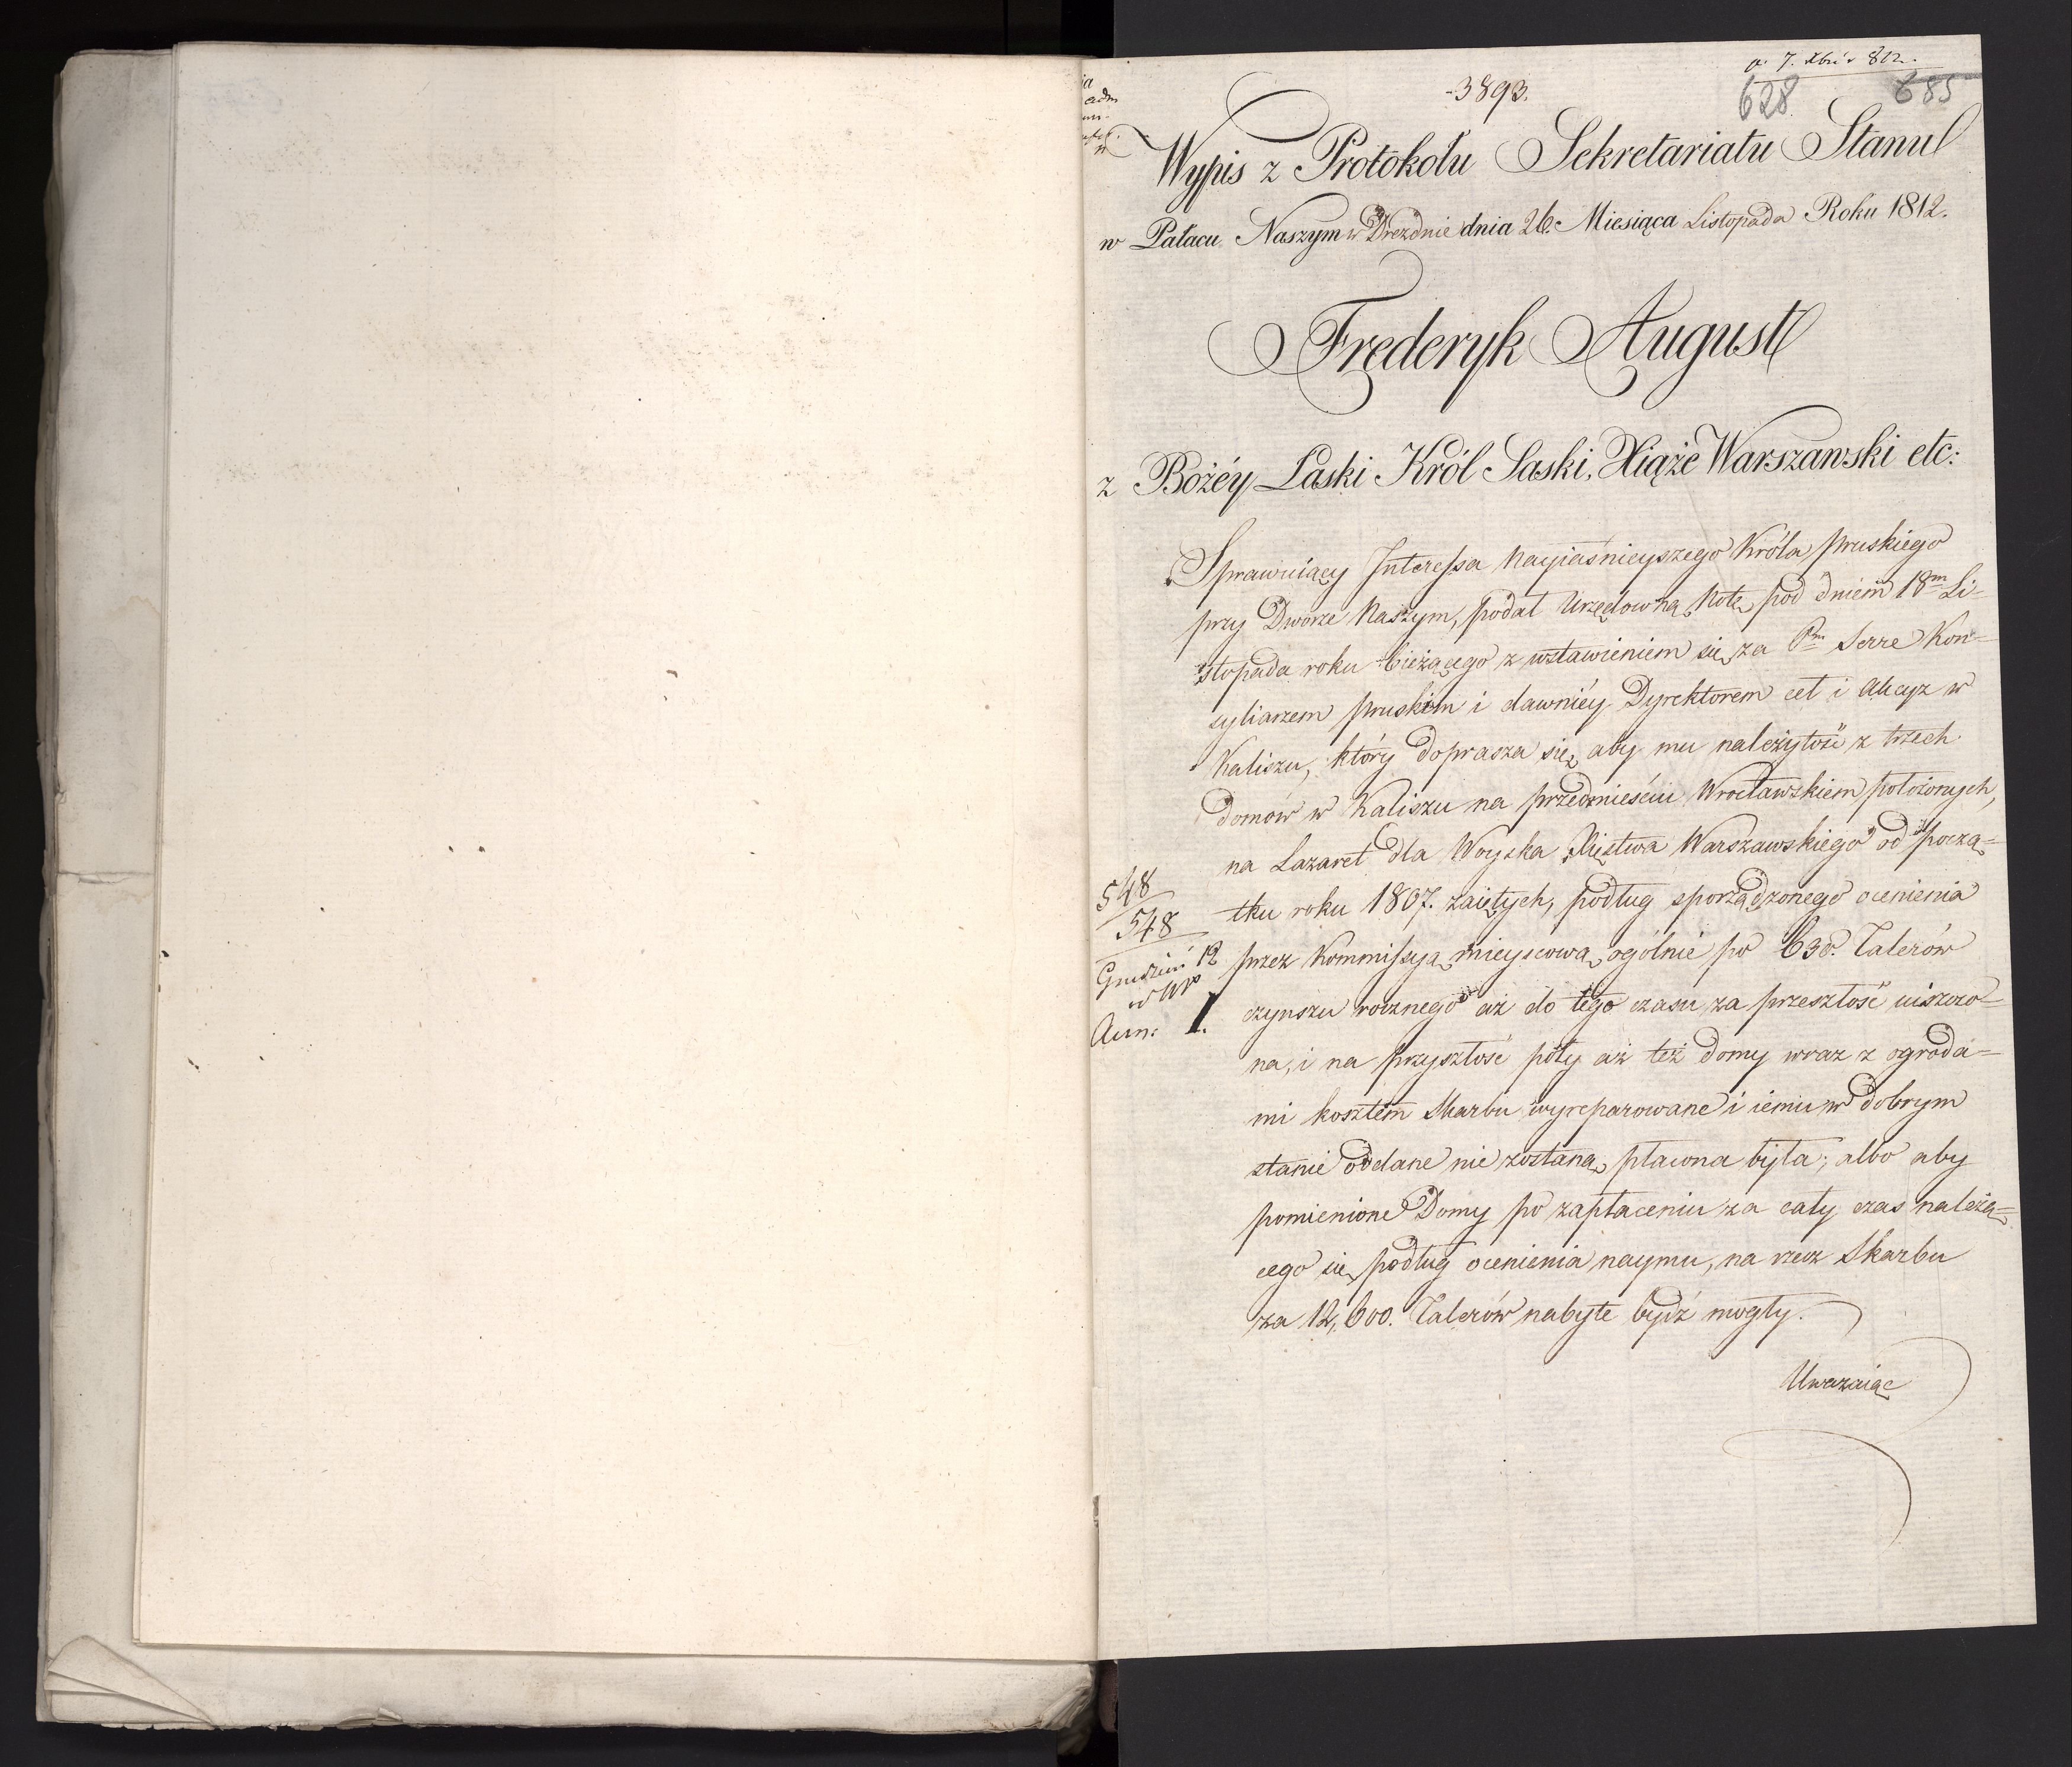 3893.
628 685
Wypis z Protokołu Sekretariatu Stanu
w Pałacu Naszym w Dreźdnie dnia 26. Miesiąca Listopada Roku 1812.
Frederyk August
z Bożéy Łaski Król Saski, Xiąże Warszawski etc:
Sprawuiący Interessa Nayiaśnieyszego Króla pruskiego
przy Dworze Naszym, podał Urzędowną Notę pod dniem 18m Li=
stopada roku bieżącego z wstawieniem się za Pm Serre Kon=
syliarzem pruskim i dawniéy Dyrektorem ceł i Akcyz w
Kaliszu, który doprasza się, aby mu należytość z trzech
domów w Kaliszu na przedmieściu Wrocławskiem położonych,
na Lazaret dla Woyska Xięstwa Warszawskiego od począ=
548
548
tku roku 1807. zaiętych, podług sporządzonego ocenienia
Grudzień 12
przez Kommissyą mieyscową ogólnie po 630. Talerów
czynszu rocznego aż do tego czasu za przeszłość uiszczo=
I.
na, i na przyszłość póty aż też domy wraz z ogroda=
mi kosztem Skarbu wyreparowane i iemu w dobrym
stanie oddane nie zostaną, płacona była; albo aby
pomienione Domy po zapłaceniu za cały czas należą=
cego się podług ocenienia naymu, na rzecz Skarbu
za 12,600. Talerów nabyte bydź mogły.
Uważaiąc